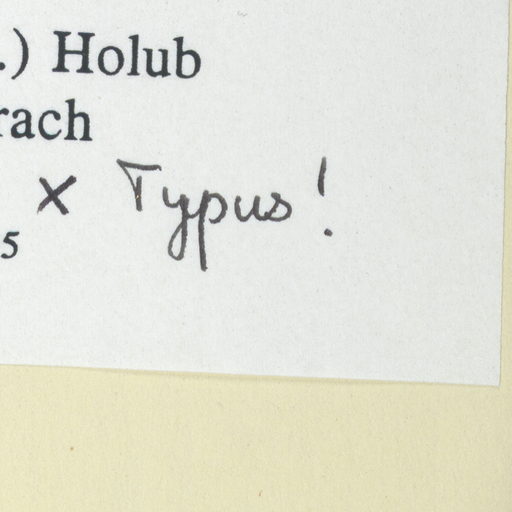 .) Holub
rach
× Typus!
5